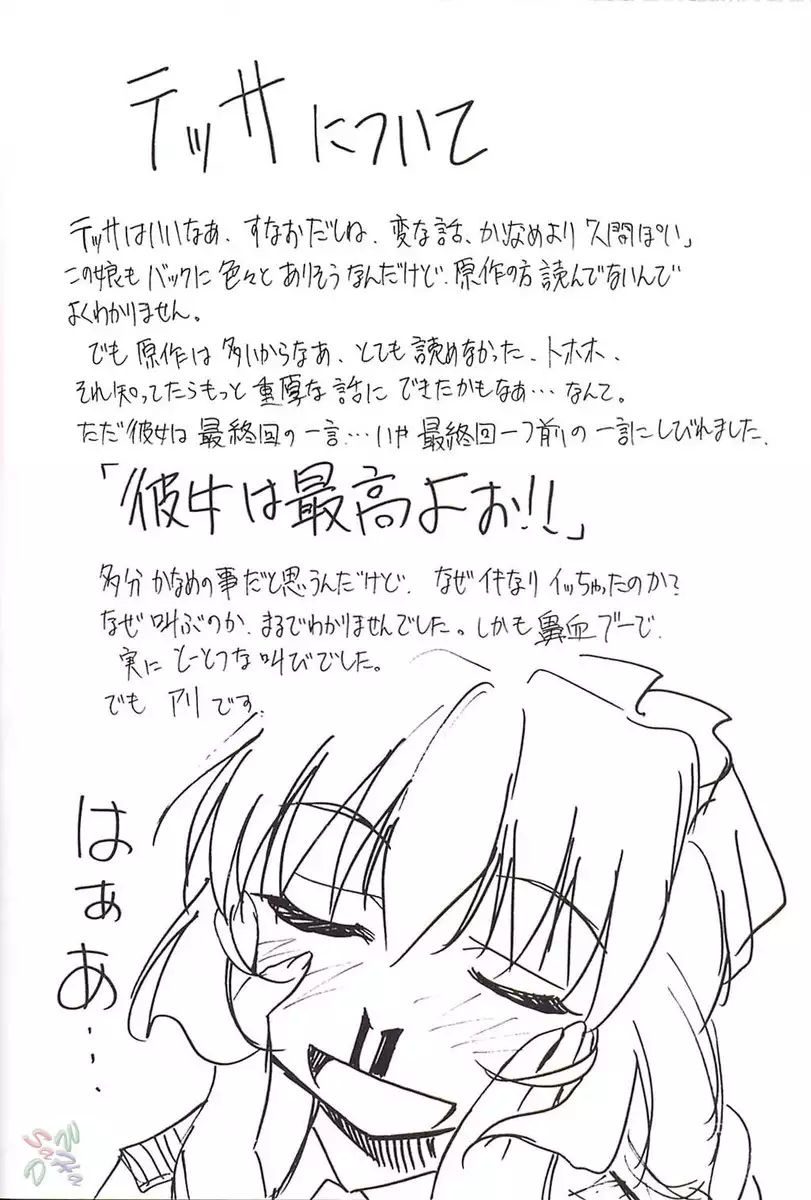 テッサについて
テッサはいいなぁ、すなおだしね、変な話、かなめより人間ぽい」
この娘もバックに色々とありそうなんだけど、原作の方読んでないんで
よくわかりません。
でも原作は多いからなぁ、とても読めなかった、トホホ、
それ知ってたらもっと重厚な話にできたかもなぁ…なんて。
ただ彼女は最終回の一言…いや最終回一つ前の一言にしびれました.
「彼女は最高よぉ!!」
多分かなめの事だと思うんだけど、なぜイキなりイッちゃったのか?
なぜ叫ぶのか、まるでわかりませんでした。しかも鼻血ブーで、
実にとーとつな叫びでした。
でもアリです.
はぁぁ…